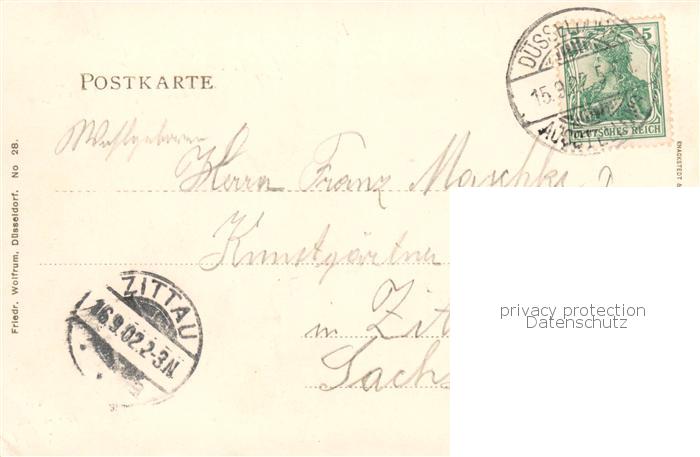 DÜSSELDORF
15.9.02.5
AUSSTELLUNG
5
DEUTSCHES REICH
POSTKARTE
Wohlgeboren
Herrn Franz Maschke
Kunstgärtner
in Zit
Sachs
privacy protection
Datenschutz
ZITTAU
16.9.02.2-3N.
Friedr. Wolfrum, Düsseldorf. No 28.
KNACKSTEDT &